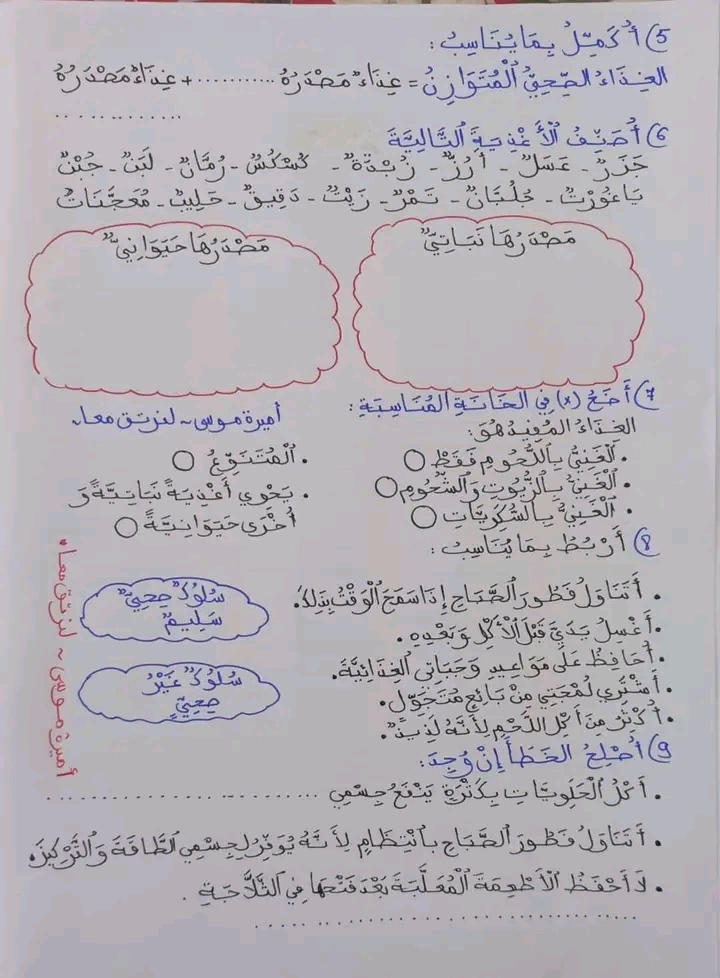 5) أُكَمِّلُ بِمَا يُنَاسِبُ:
الغِذَاءُ الصِّحِيُّ الْمُتَوَازِنُ = غِذَاءٌ مَصْدَرُهُ ........... + غِذَاءٌ مَصْدَرُهُ
..............
6) أُصَنِّفُ الْأَغْذِيَةَ التَّالِيَةَ
جَزَرٌ - عَسَلٌ - أَرُزٌّ - زُبْدَةٌ - كُسْكُسٌ - رُمَّانٌ - لَبَنٌ - جُبْنٌ
يَاغُورْتٌ - جُلْبَّانٌ - تَمْرٌ - زَيْتٌ - دَقِيقٌ - حَلِيبٌ - مُعَجَّنَاتٌ
مَصْدَرُهَا نَبَاتِيٌّ
مَصْدَرُهَا حَيَوَانِيٌّ
7) أَضَعُ (x) فِي الخَانَةِ المُنَاسِبَةِ:
أميرة موسى ~ لنرتق معا.
الغِذَاءُ المُفِيدُ هُوَ:
. الغَنِيُّ بِاللُّحُومِ فَقَطْ
. الْغَنِيُّ بِالزُّيُوتِ وَالشُّحُومِ
. الْغَنِيُّ بِالسُّكَّرِيَّاتِ
. الْمُتَنَوِّعُ
. يَحْوِي أَغْذِيَةً نَبَاتِيَّةً وَ
أُخْرَى حَيَوَانِيَّةً
8) أَرْبُطُ بِمَا يُنَاسِبُ:
. أَتَنَاوَلُ فَطُورَ الصَّبَاحِ إِذَا سَمَحَ الْوَقْتُ بِذَلِكَ.
. أَغْسِلُ يَدَيَّ قَبْلَ الْأَكْلِ وَبَعْدِهِ.
. أُحَافِظُ عَلَى مَوَاعِيدِ وَجَبَاتِي الغِذَائِيَّةِ.
. أَشْتَرِي لُمْجَتِي مِنْ بَائِعٍ مُتَجَوِّلٍ.
. أُكْثِرُ مِنَ أَكْلِ اللَّحْمِ لِأَنَّهُ لَذِيذٌ.
سُلُوكٌ صِحِّيٌّ
سَلِيمٌ
سُلُوكٌ غَيْرُ
صِحِّيٍّ
أميرة موسى ~ لنرتق معا.
9) أُصْلِحُ الخَطَأَ إِنْ وُجِدَ:
. أَكْلُ الْحَلَوِيَّاتِ بِكَثْرَةٍ يَنْفَعُ جِسْمِي ..............................
. أَتَنَاوَلُ فَطُورَ الصَّبَاحِ بِانْتِظَامٍ لِأَنَّهُ يُوَفِّرُ لِجِسْمِي الطَّاقَةَ وَالتَّرْكِيزَ.
. لَا أَحْفَظُ الْأَطْعِمَةَ الْمُعَلَّبَةَ بَعْدَ فَتْحِهَا فِي الثَّلَّاجَةِ.
..............................